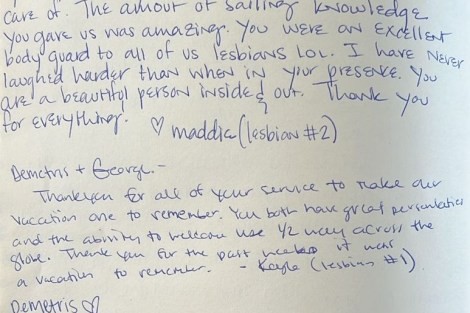 care of. The amout of sailing knowledge
you gave us was amazing. You were an excellent
body guard to all of us lesbians LOL. I have never
laughed harder than when in your presence. You
are a beautiful person inside & out. Thank you
for everything. ♡ maddia (lesbian #2)
Demetris + George -
Thankyou for all of your service to make our
vacation one to remember. You both have great personalities
and the ability to welcome use 1/2 way across the
globe. Thank you for the past week it was
a vacation to remember. - Kayla (lesbian #1)
Demetris ♡